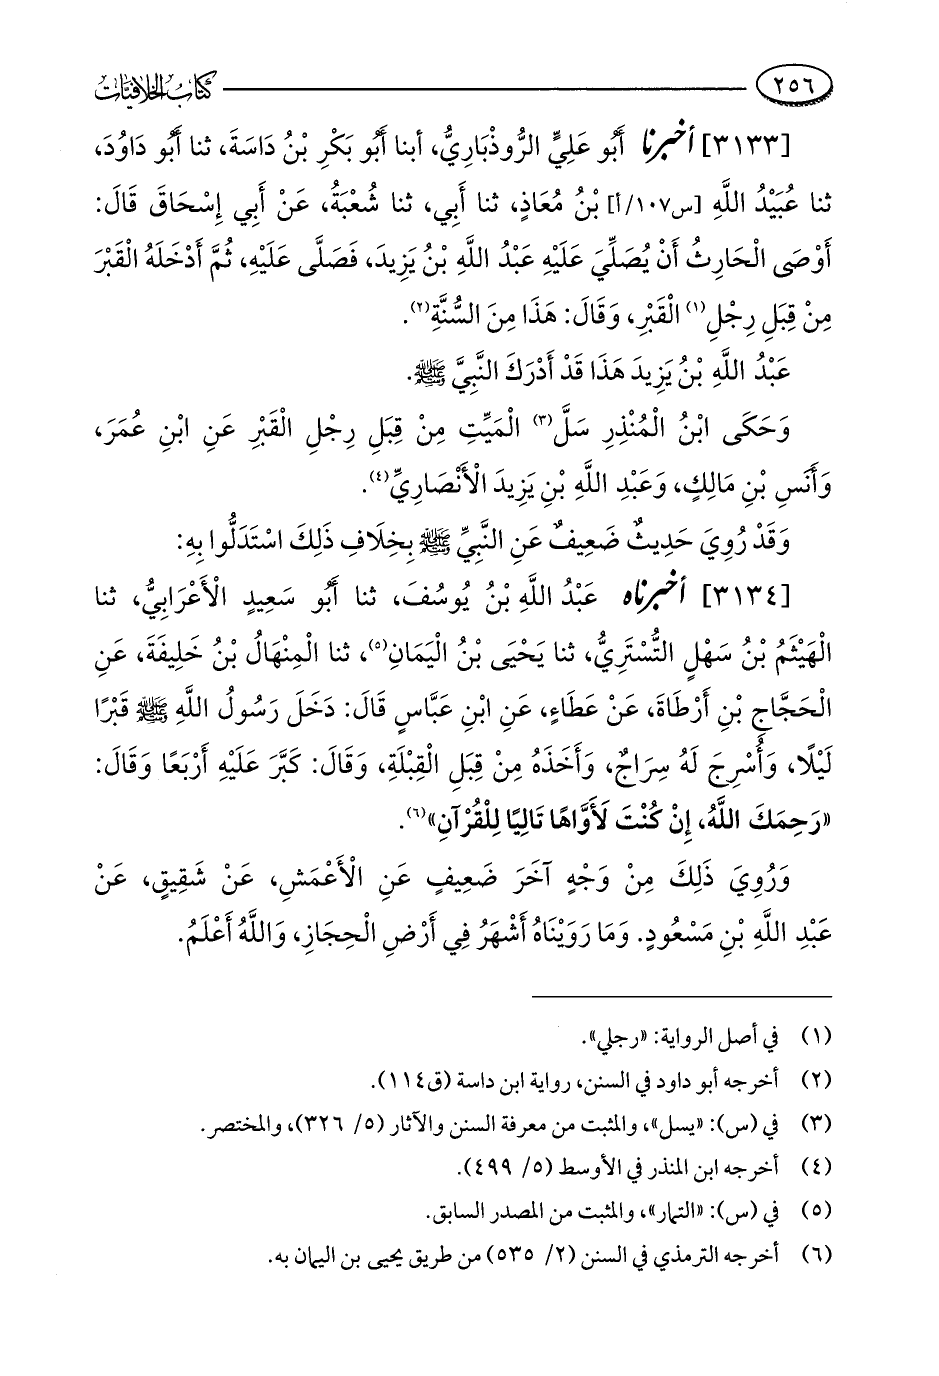 ٢٥٦ كتاب الخلافيات
[٣١٣٣] أخبرنا أَبُو عَلِيٍّ الرُّوذْبَارِيُّ، أبنا أَبُو بَكْرِ بْنُ دَاسَةَ، ثنا أَبُو دَاوُدَ،
ثنا عُبَيْدُ اللَّهِ [س١٠٧/أ] بْنُ مُعَاذٍ، ثنا أَبِي، ثنا شُعْبَةُ، عَنْ أَبِي إِسْحَاقَ قَالَ:
أَوْصَى الْحَارِثُ أَنْ يُصَلِّيَ عَلَيْهِ عَبْدُ اللَّهِ بْنُ يَزِيدَ، فَصَلَّى عَلَيْهِ، ثُمَّ أَدْخَلَهُ الْقَبْرَ
مِنْ قِبَلِ رِجْلِ(١) الْقَبْرِ، وَقَالَ: هَذَا مِنَ السُّنَّةِ(٢).
عَبْدُ اللَّهِ بْنُ يَزِيدَ هَذَا قَدْ أَدْرَكَ النَّبِيَّ ﷺ.
وَحَكَى ابْنُ الْمُنْذِرِ سَلَّ(٣) الْمَيِّتِ مِنْ قِبَلِ رِجْلِ الْقَبْرِ عَنِ ابْنِ عُمَرَ،
وَأَنَسِ بْنِ مَالِكٍ، وَعَبْدِ اللَّهِ بْنِ يَزِيدَ الْأَنْصَارِيِّ(٤).
وَقَدْ رُوِيَ حَدِيثٌ ضَعِيفٌ عَنِ النَّبِيِّ ﷺ بِخِلَافِ ذَلِكَ اسْتَدَلُّوا بِهِ:
[٣١٣٤] أخبرناه عَبْدُ اللَّهِ بْنُ يُوسُفَ، ثنا أَبُو سَعِيدٍ الْأَعْرَابِيُّ، ثنا
الْهَيْثَمُ بْنُ سَهْلٍ التُّسْتَرِيُّ، ثنا يَحْيَى بْنُ الْيَمَانِ(٥)، ثنا الْمِنْهَالُ بْنُ خَلِيفَةَ، عَنِ
الْحَجَّاجِ بْنِ أَرْطَاةَ، عَنْ عَطَاءٍ، عَنِ ابْنِ عَبَّاسٍ قَالَ: دَخَلَ رَسُولُ اللَّهِ ﷺ قَبْرًا
لَيْلًا، وَأُسْرِجَ لَهُ سِرَاجٌ، وَأَخَذَهُ مِنْ قِبَلِ الْقِبْلَةِ، وَقَالَ: كَبَّرَ عَلَيْهِ أَرْبَعًا وَقَالَ:
«رَحِمَكَ اللَّهُ، إِنْ كُنْتَ لَأَوَّاهًا تَالِيًا لِلْقُرْآنِ»(٦).
وَرُوِيَ ذَلِكَ مِنْ وَجْهٍ آخَرَ ضَعِيفٍ عَنِ الْأَعْمَشِ، عَنْ شَقِيقٍ، عَنْ
عَبْدِ اللَّهِ بْنِ مَسْعُودٍ. وَمَا رَوَيْنَاهُ أَشْهَرُ فِي أَرْضِ الْحِجَازِ، وَاللَّهُ أَعْلَمُ.
(١) في أصل الرواية: «رجلي».
(٢) أخرجه أبو داود في السنن، رواية ابن داسة (ق١١٤).
(٣) في (س): «يسل»، والمثبت من معرفة السنن والآثار (٥/ ٣٢٦)، والمختصر.
(٤) أخرجه ابن المنذر في الأوسط (٥/ ٤٩٩).
(٥) في (س): «التمار»، والمثبت من المصدر السابق.
(٦) أخرجه الترمذي في السنن (٢/ ٥٣٥) من طريق يحيى بن اليمان به.